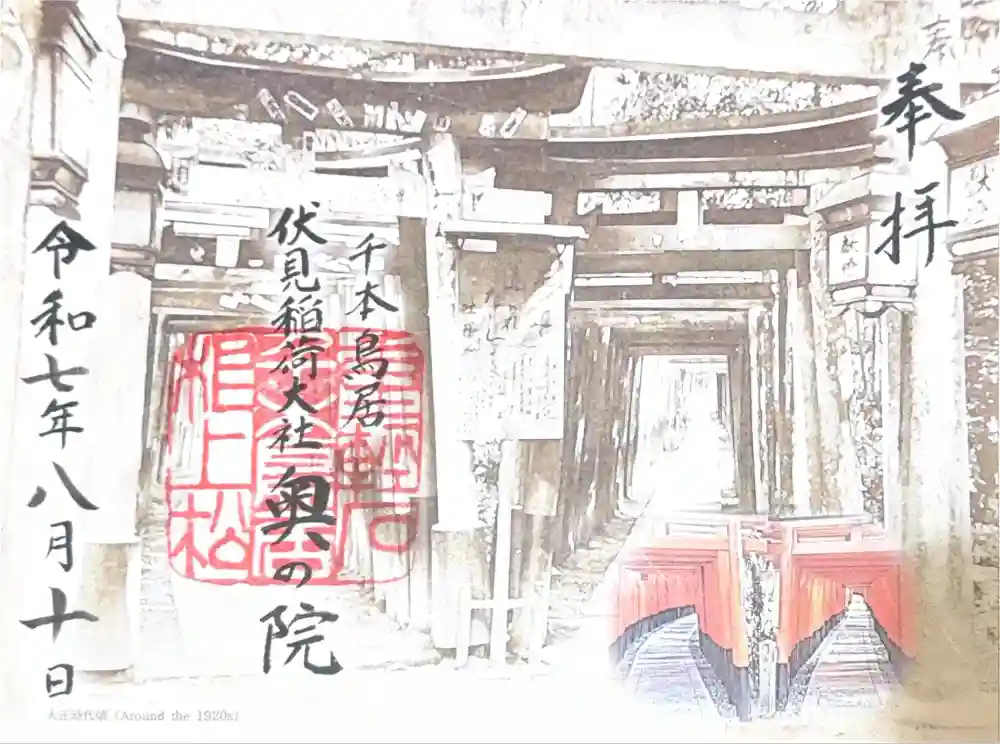 奉拝
千本鳥居
伏見稲荷大社奥の院
令和七年八月十日
大正時代頃 (Around the 1920s)